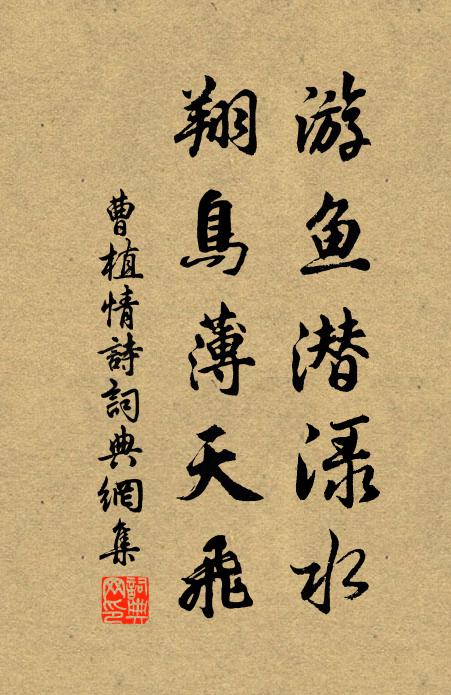 游鱼潜渌水
翔鳥薄天飛
曹植情詩詞典網集
詞典
网印